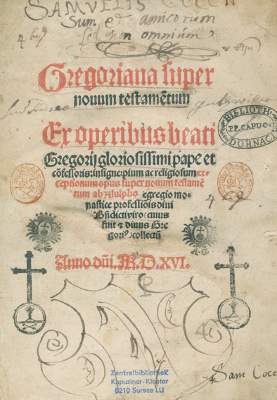 SAMVELIS
Sum et amicorum
omnium
Gregoriana super
nouum testamētum
Ex operibus beati
Gregorij gloriosissimi pape et
cōfessoris: insignc̄ipium ac religiosum ex
ceptionum opus super nouum testamē
tum ab Alulpho egregio mo
nastice professiōis diui
Bn̄dicti viro: cuius
fuit & diuus Gre
gori⁹: collectū
Anno dn̄i. M.D.XVI.
BIBLIOTH.
PP. CAPUC.
DORNACI
Zentralbibliothek
Kapuziner-Kloster
6210 Sursee LU